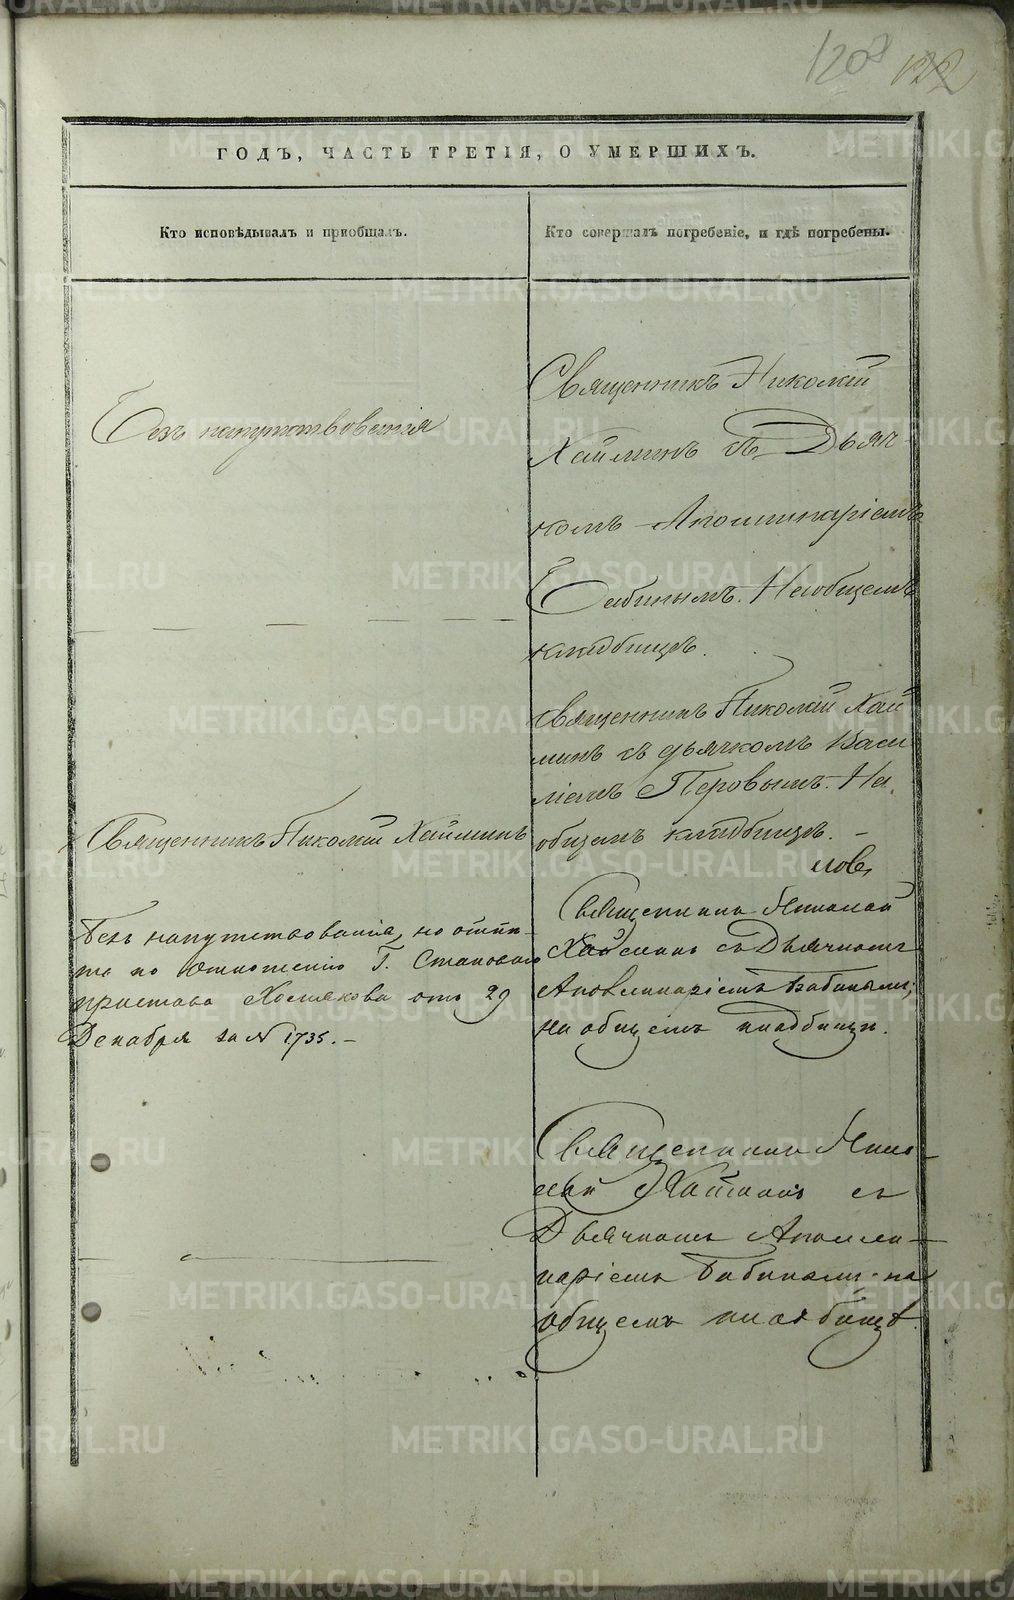 1208 122
ГОДЪ, ЧАСТЬ ТРЕТІЯ, О УМЕРШИХЪ.
Кто исповѣдывалъ и пріобщалъ.
Кто совершалъ погребеніе, и гдѣ погребены.
Безъ напутствованія
Священникъ Николай
Хайминъ съ Дьяч-
комъ Аполинаріемъ
Бабинымъ. На общемъ
кладбищѣ.
Священникъ Николай Хайминъ
Священникъ Николай Хай
минъ съ дьячкомъ Васи
ліемъ Перовымъ. На
общемъ кладбищѣ. –
Безъ напутствованія, но отпѣ-
та по отношенію Г. Становаго
пристава Хомякова отъ 29
Декабря за N 1735. –
Священникъ Николай
Хайминъ съ Дьячкомъ
Аполлинаріемъ Бабинымъ;
на общемъ кладбищѣ.
Священникъ Нико-
лай Хайминъ съ
Дьячкомъ Аполли-
наріемъ Бабинымъ на
общемъ кладбищѣ.
METRIKI.GASO-URAL.RU